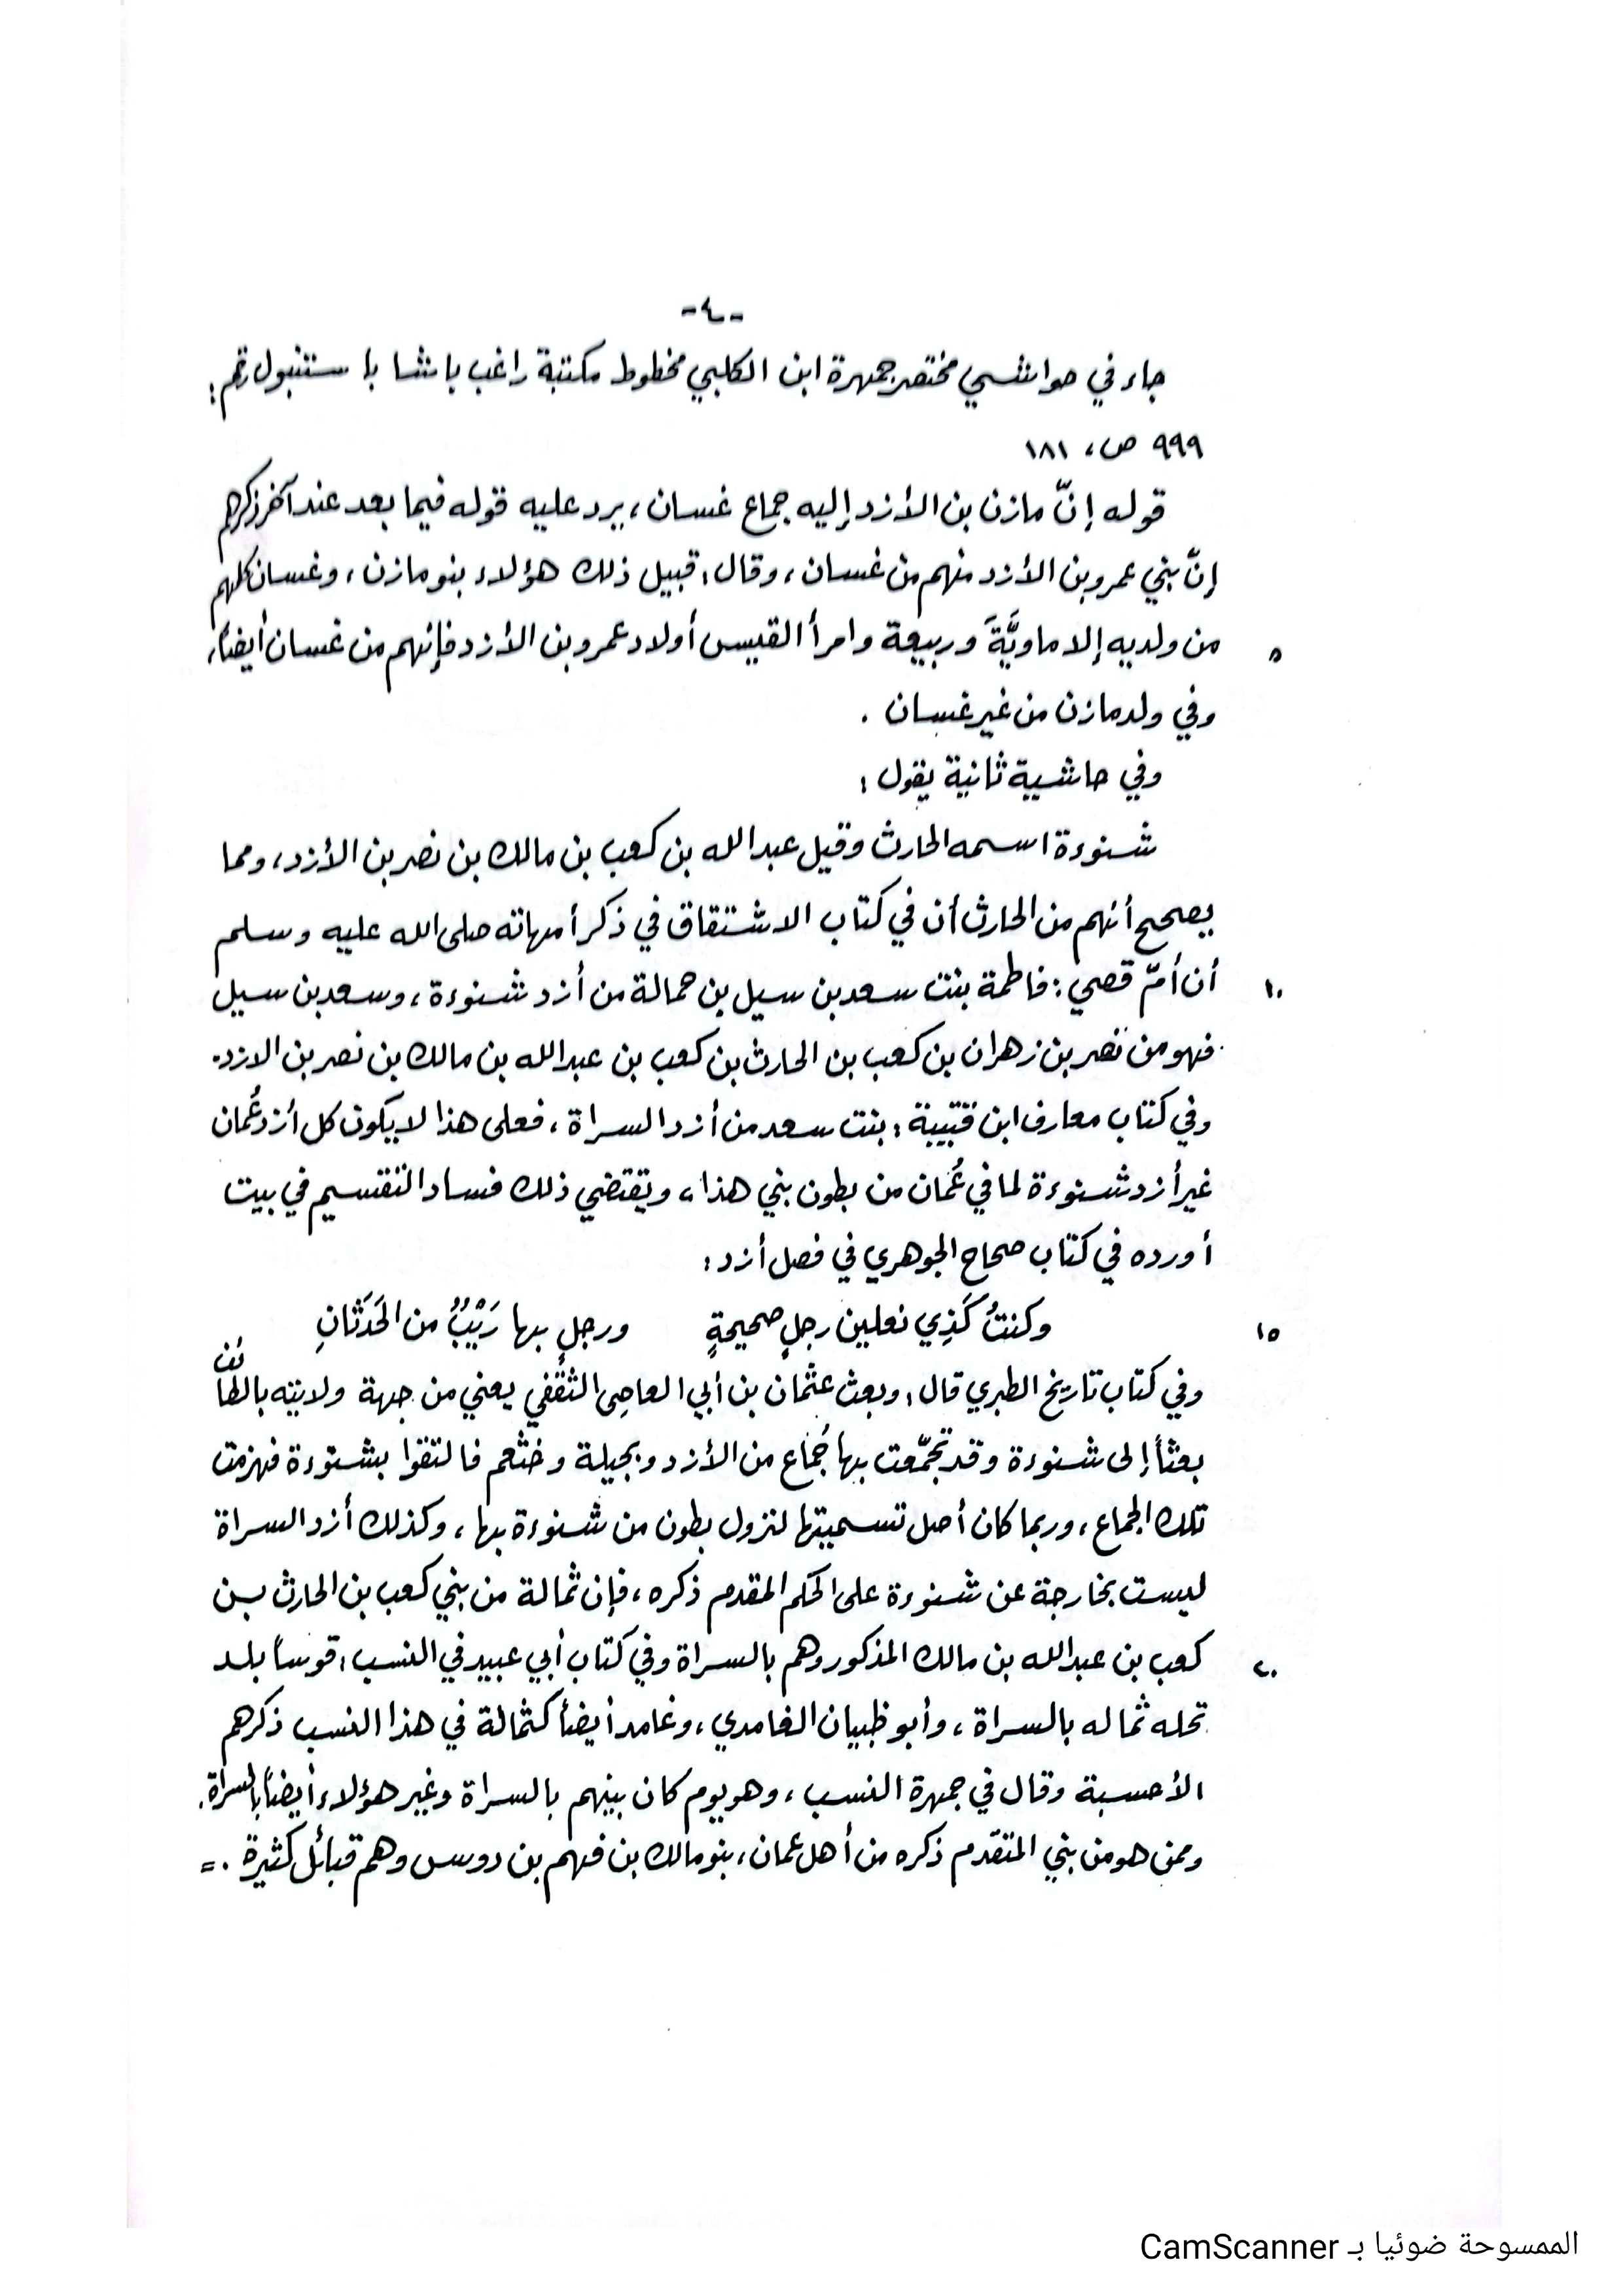 -٤-
جاء في حواشي مختصر جمهرة ابن الكلبي مخطوط مكتبة راغب باشا باستنبول رقم:
٩٩٩ ص، ١٨١
قوله إنّ مازن بن الأزد إليه جماع غسان، يرد عليه قوله فيما بعد عند آخر ذكرهم
إنّ بني عمرو بن الأزد منهم من غسان، وقال: قبيل ذلك هؤلاء بنو مازن، وغسان كلهم
٥ من ولديه إلا ماويَّةَ وربيعة وامرأ القيس أولاد عمرو بن الأزد فإنهم من غسان أيضاً،
وفي ولد مازن من غير غسان .
وفي حاشية ثانية يقول:
شنوءة اسمه الحارث وقيل عبد الله بن كعب بن مالك بن نصر بن الأزد، ومما
يصحح أنهم من الحارث أن في كتاب الاشتقاق في ذكر أمهاته صلى الله عليه وسلم
١٠ أن أمّ قصي: فاطمة بنت سعد بن سيل بن حمالة من أزد شنوءة، وسعد بن سيل
فهو من نصر بن زهران بن كعب بن الحارث بن كعب بن عبدالله بن مالك بن نصر بن الازد.
وفي كتاب معارف ابن قتيبة: بنت سعد من أزد السراة، فعلى هذا لا يكون كل أزد عُمان
غير أزد شنوءة لما في عُمان من بطون بني هذا، ويقتضي ذلك فساد التقسيم في بيت
أورده في كتاب صحاح الجوهري في فصل أزد:
١٥ وكنتُ كَذِي نعلين رجلٍ صحيحةٍ ورجلٍ بها رَيْبٌ من الحَدَثانِ
وفي كتاب تاريخ الطبري قال: وبعث عثمان بن أبي العاصِى الثَّقَفي يعني من جهة ولايته بالطائف
بعثاً إلى شنوءة وقد تجمّعت بها جُماع من الأزد وبجيلة وخثعم فالتقوا بشنوءة فهزمت
تلك الجماع، وربما كان أصل تسميتها لنزول بطون من شنوءة بها، وكذلك أزد السراة
ليست بخارجة عن شنوءة على الحكم المقدم ذكره، فإن ثمالة من بني كعب بن الحارث بن
٢٠ كعب بن عبدالله بن مالك المذكور وهم بالسراة وفي كتاب أبي عبيد في النسب: قوسا بلد
تحله ثماله بالسراة، وأبو ظبيان الغامدي، وغامد أيضاً كثمالة في هذا النسب ذكرهم
الأحسبة وقال في جمهرة النسب، وهو يوم كان بينهم بالسراة وغير هؤلاء أيضاً بالسراة.
وممن هو من بني المتقدّم ذكره من أهل عمان، بنو مالك بن فهم بن دوس وهم قبائل كثيرة . =
الممسوحة ضوئيا بـ CamScanner